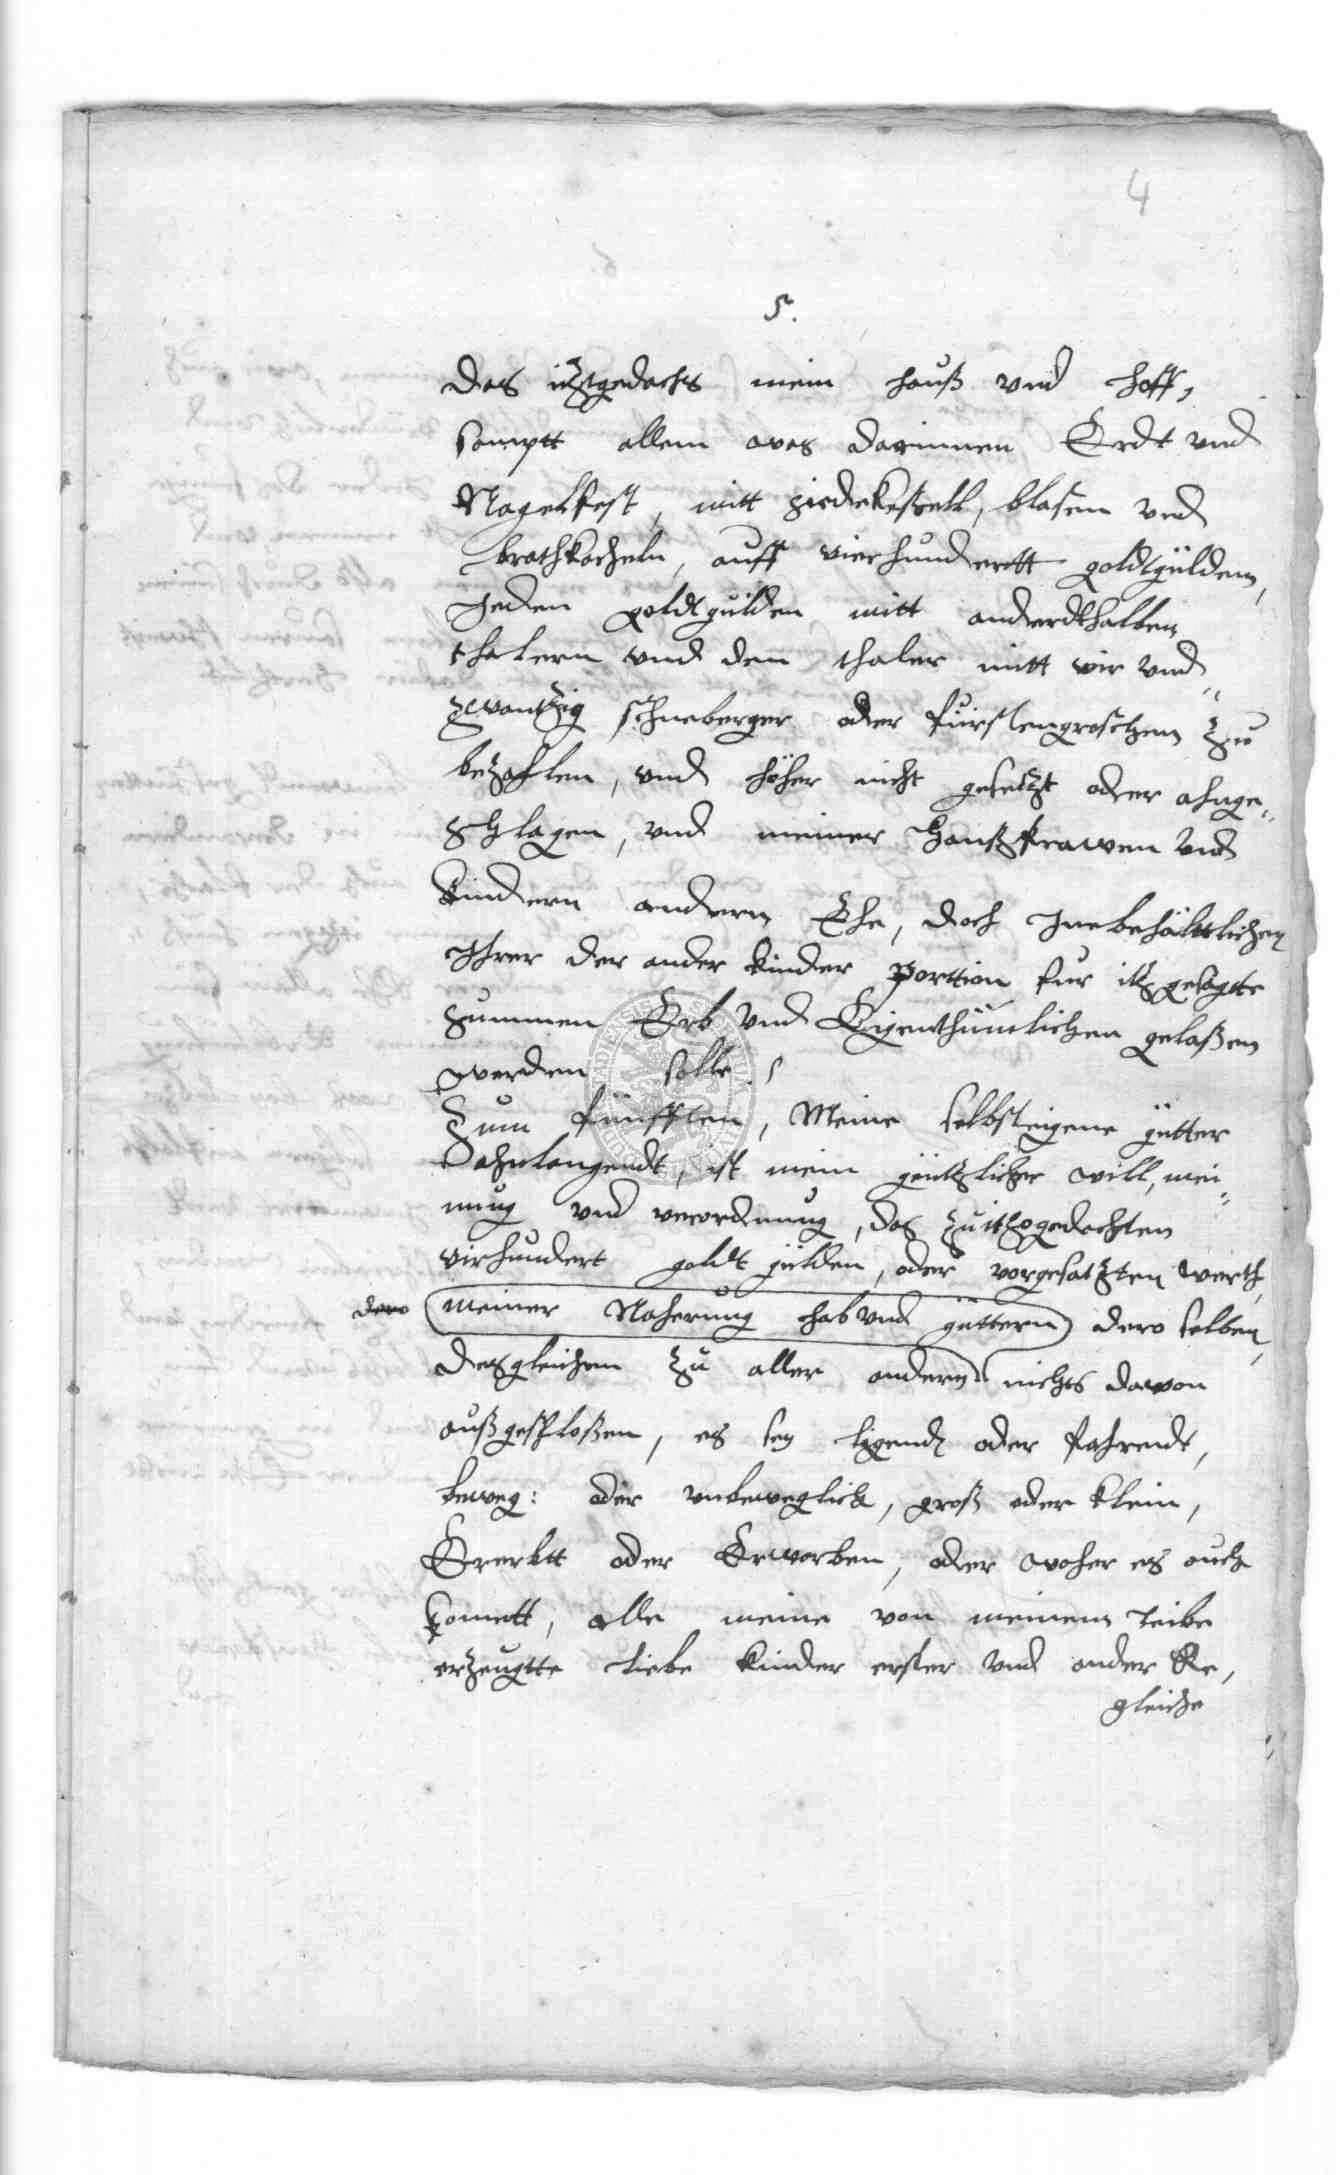 4
5.
das itztgedachts mein hauß vnd hoff,
samptt allem was darinnen Erdt vnd
Nagelfest, mitt siedekeßell, blasen vnd
brathkacheln, auff vierhunderott goldtgülden,
Jeden goldtgulden mitt anderdthalben
thalern vnd den thaler mitt vir vnd
zwantzig schneberger oder fürstengroschen zu
bezahlen, vnd höher nicht gesetzt oder ahnge-
schlagen, vnd meiner Haußfrawen vnd
kindern andern Ehe, doch Jnebehälttlichen
Jhrer der ander kinder porttion fur itzgesagtte
Summen Erb vnd Eigenthümlichen gelaßen
werden solle.
Zum fünfften, Meine selbsteigene gütter
ahnlangendt, ist mein gentzlicher will, mei-
nung vnd verordnung, das zu itzogedachten
virhundert goldt gülden, oder vorgesatzten werth,
dero meiner Naherung hab vnd güttern dero selben,
desgleichen zu aller andern nichts davon
außgeschloßen, es sey ligend oder fahrendt,
beweg: oder vnbeweglich, groß oder klein,
Ererbtt oder Erworben, oder woher es auch
komett, alle meine von meinem leibe
erzeugtte liebe kinder erster vnd ander Ehe,
gleiche